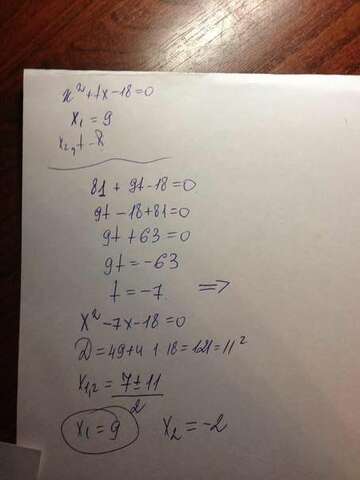 x²+tx-18=0
x₁ = 9
x₂, t - ?
81 + 9t-18=0
9t -18+81=0
9t +63=0
9t = -63
t = -7 =>
x² -7x-18=0
D=49+4·18=121=11²
x₁,₂ = 7±11
2
x₁ = 9 x₂ = -2